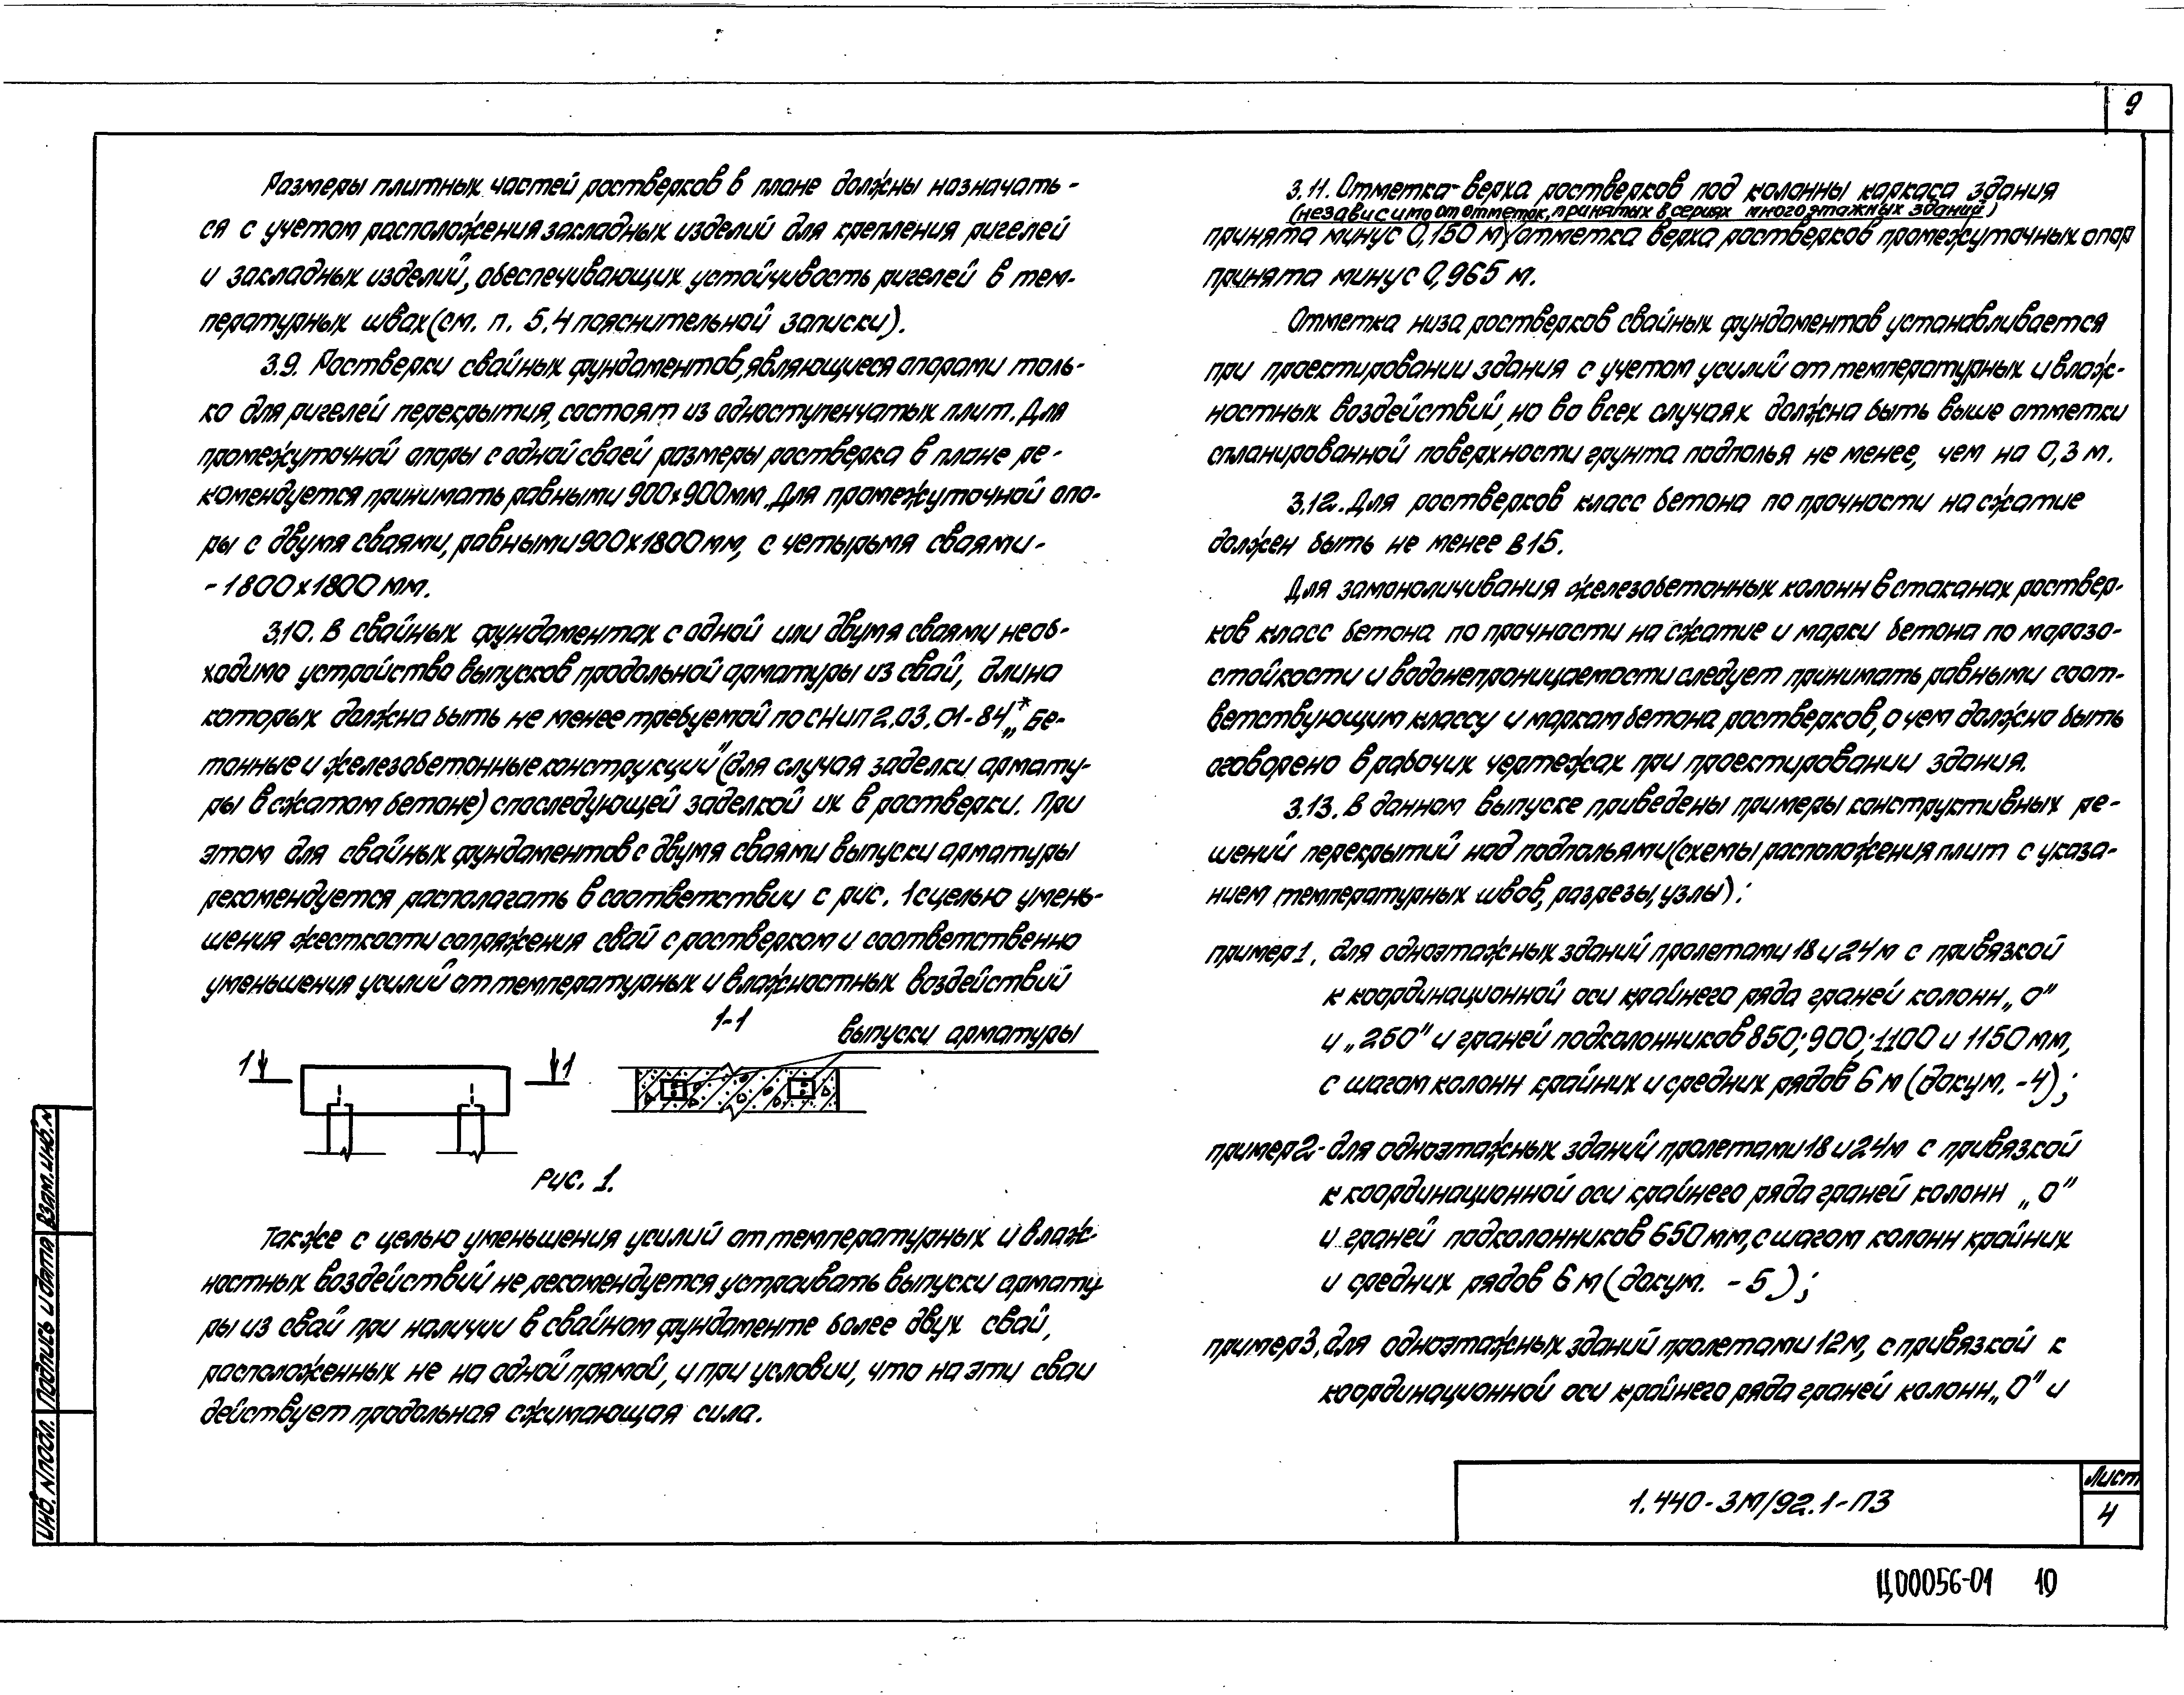 9
Размеры плитных частей ростверков в плане должны назначать-
ся с учетом расположения закладных изделий для крепления ригелей
и закладных изделий, обеспечивающих устойчивость ригелей в тем-
пературных швах (см. п. 5.4 пояснительной записки).
3.9. Ростверки свайных фундаментов, являющиеся опорами толь-
ко для ригелей перекрытия, состоят из одноступенчатых плит. Для
промежуточной опоры с одной сваей размеры ростверка в плане ре-
комендуется принимать равными 900х900мм. Для промежуточной опо-
ры с двумя сваями, равными 900х1800мм, с четырьмя сваями-
- 1800х1800мм.
3.10. В свайных фундаментах с одной или двумя сваями необ-
ходимо устройство выпусков продольной арматуры из свай, длина
которых должна быть не менее требуемой по СНиП 2.03.01-84* „Бе-
тонные и железобетонные конструкции" (для случая заделки армату-
ры в сжатом бетоне) с последующей заделкой их в ростверки. При
этом для свайных фундаментов с двумя сваями выпуски арматуры
рекомендуется располагать в соответствии с рис. 1 с целью умень-
шения жесткости сопряжения свай с ростверком и соответственно
уменьшения усилий от температурных и влажностных воздействий
1-1
выпуски арматуры
1 1
Рис. 1.
Также с целью уменьшения усилий от температурных и влаж-
ностных воздействий не рекомендуется устраивать выпуски армату-
ры из свай при наличии в свайном фундаменте более двух свай,
расположенных не на одной прямой, и при условии, что на эти сваи
действует продольная сжимающая сила.
3.11. Отметка верха ростверков под колонны каркаса здания
(независимо от отметок, принятых в сериях многоэтажных зданий)
принята минус 0,150 м, отметка верха ростверков промежуточных опор
принята минус 0,965 м.
Отметка низа ростверков свайных фундаментов устанавливается
при проектировании здания с учетом усилий от температурных и влаж-
ностных воздействий, но во всех случаях должна быть выше отметки
спланированной поверхности грунта подполья не менее, чем на 0,3 м.
3.12. Для ростверков класс бетона по прочности на сжатие
должен быть не менее В15.
Для замоноличивания железобетонных колонн в стаканах роствер-
ков класс бетона по прочности на сжатие и марки бетона по морозо-
стойкости и водонепроницаемости следует принимать равными соот-
ветствующим классу и маркам бетона ростверков, о чем должно быть
оговорено в рабочих чертежах при проектировании здания.
3.13. В данном выпуске приведены примеры конструктивных ре-
шений перекрытий над подпольями (схемы расположения плит с указа-
нием температурных швов, разрезы, узлы):
пример 1, для одноэтажных зданий пролетами 18 и 24м с привязкой
к координационной оси крайнего ряда граней колонн „0"
и „250" и граней подколонников 850; 900; 1100 и 1150 мм,
с шагом колонн крайних и средних рядов 6 м (докум. -4);
пример 2- для одноэтажных зданий пролетами 18 и 24м с привязкой
к координационной оси крайнего ряда граней колонн „0"
и граней подколонников 650 мм, с шагом колонн крайних
и средних рядов 6 м (докум. -5);
пример 3, для одноэтажных зданий пролетами 12м, с привязкой к
координационной оси крайнего ряда граней колонн „0" и
Инв. N подл. Подпись и дата Взам. инв. N
1.440-3М/92.1-ПЗ
Лист
4
Ц00056-01 10